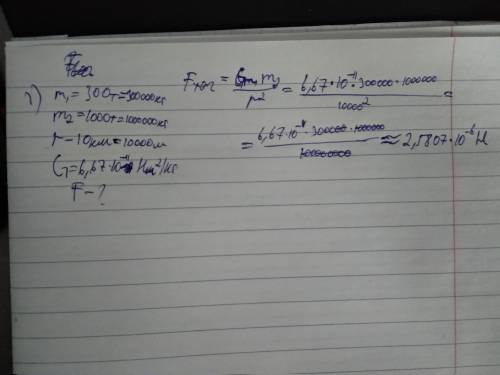 1) m₁ = 300т = 300000кг
m₂ = 1000т = 1000000кг
r - 10км = 10000м
G = 6,67·10⁻¹¹ Нм²/кг
F - ?
Fтяг = Gm₁ m₂ / r² = 6,67·10⁻¹¹·300000·1000000 / 10000² =
= 6,67·10⁻¹¹·300000·1000000 / 100000000 ≈ 2,5807·10⁻⁶Н